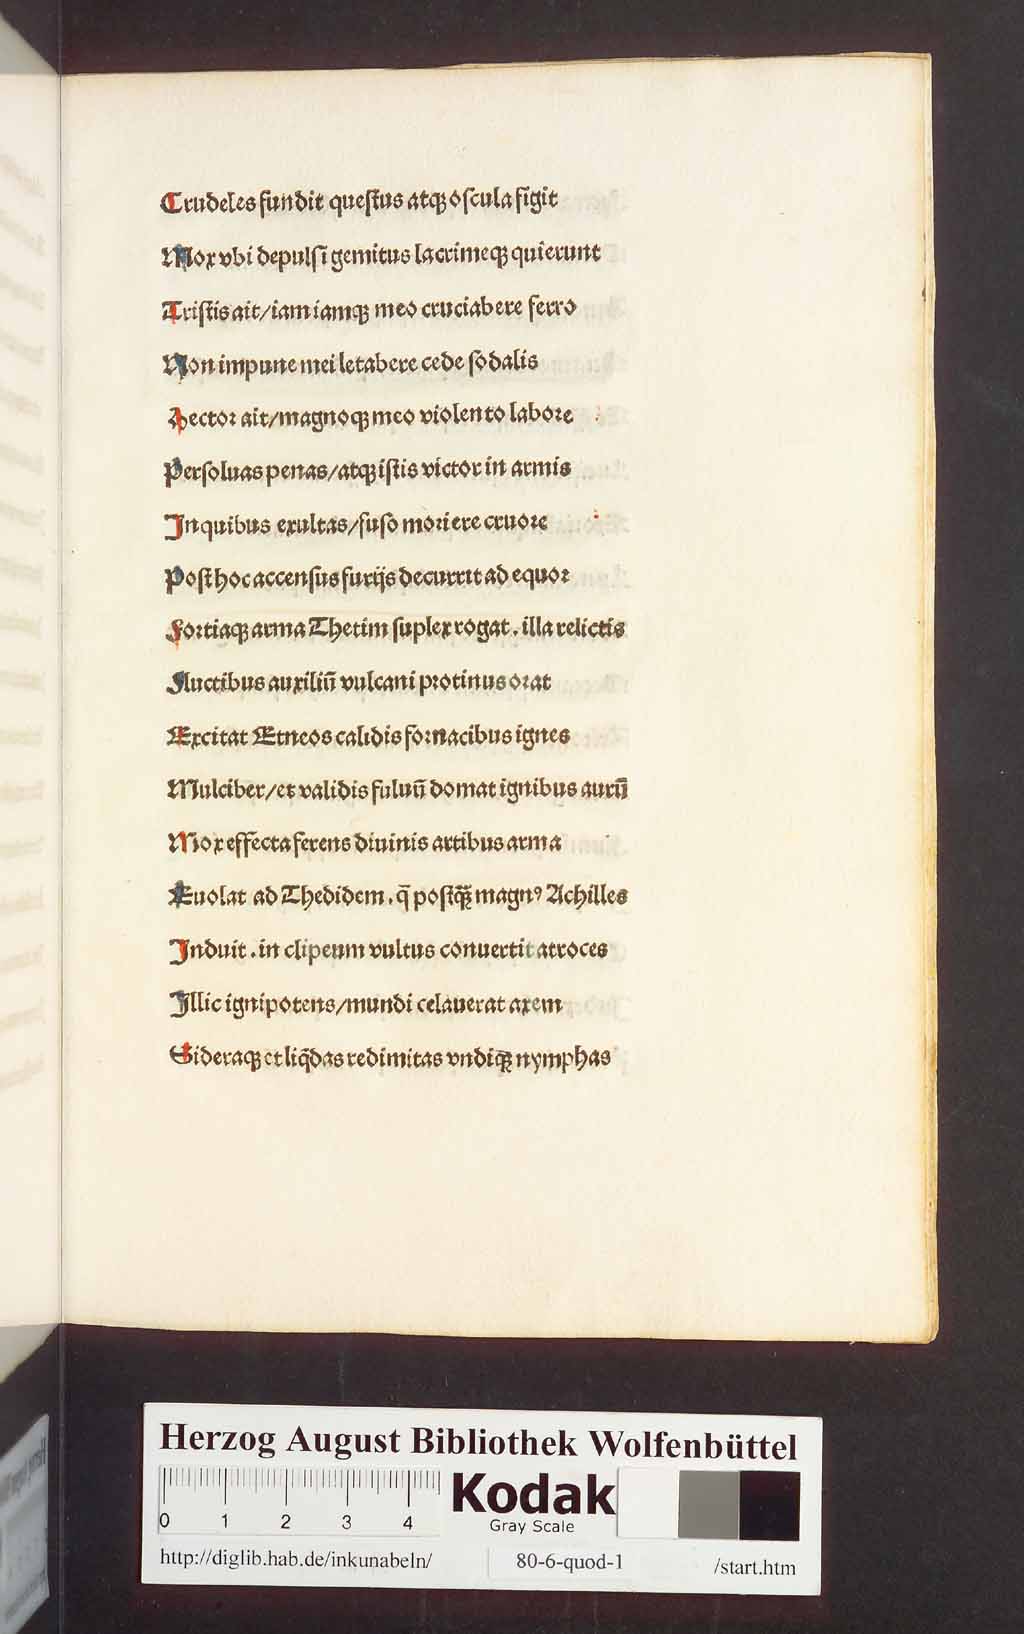 Crudeles fundit questus atqꝫ oscula figit
Mox vbi depulsi gemitus lacrimeqꝫ quierunt
Tristis ait/iam iamqꝫ meo cruciabere ferro
Non impune mei letabere cede sodalis
Hector ait/magnoqꝫ meo violento labore
Persoluas penas/atqꝫ istis victor in armis
Inquibus exultas/fuso moriere cruore
Post hoc accensus furijs decurrit ad equor
Fortiaqꝫ arma Thetim suplex rogat. illa relictis
Fluctibus auxiliū vulcani protinus orat
Excitat Etneos calidis fornacibus ignes
Mulciber/et validis fuluū domat ignibus aurū
Mox effecta ferens diuinis artibus arma
Euolat ad Thedidem. q̄ postqꝫ̄ magnꝰ Achilles
Induit. in clipeum vultus conuertit atroces
Illic ignipotens/mundi celauerat axem
Sideraqꝫ et liq̄das redimitas vndiqꝫ nymphas
Herzog August Bibliothek Wolfenbüttel
0 1 2 3 4
Kodak
Gray Scale
http://diglib.hab.de/inkunabeln/ 80-6-quod-1 /start.htm